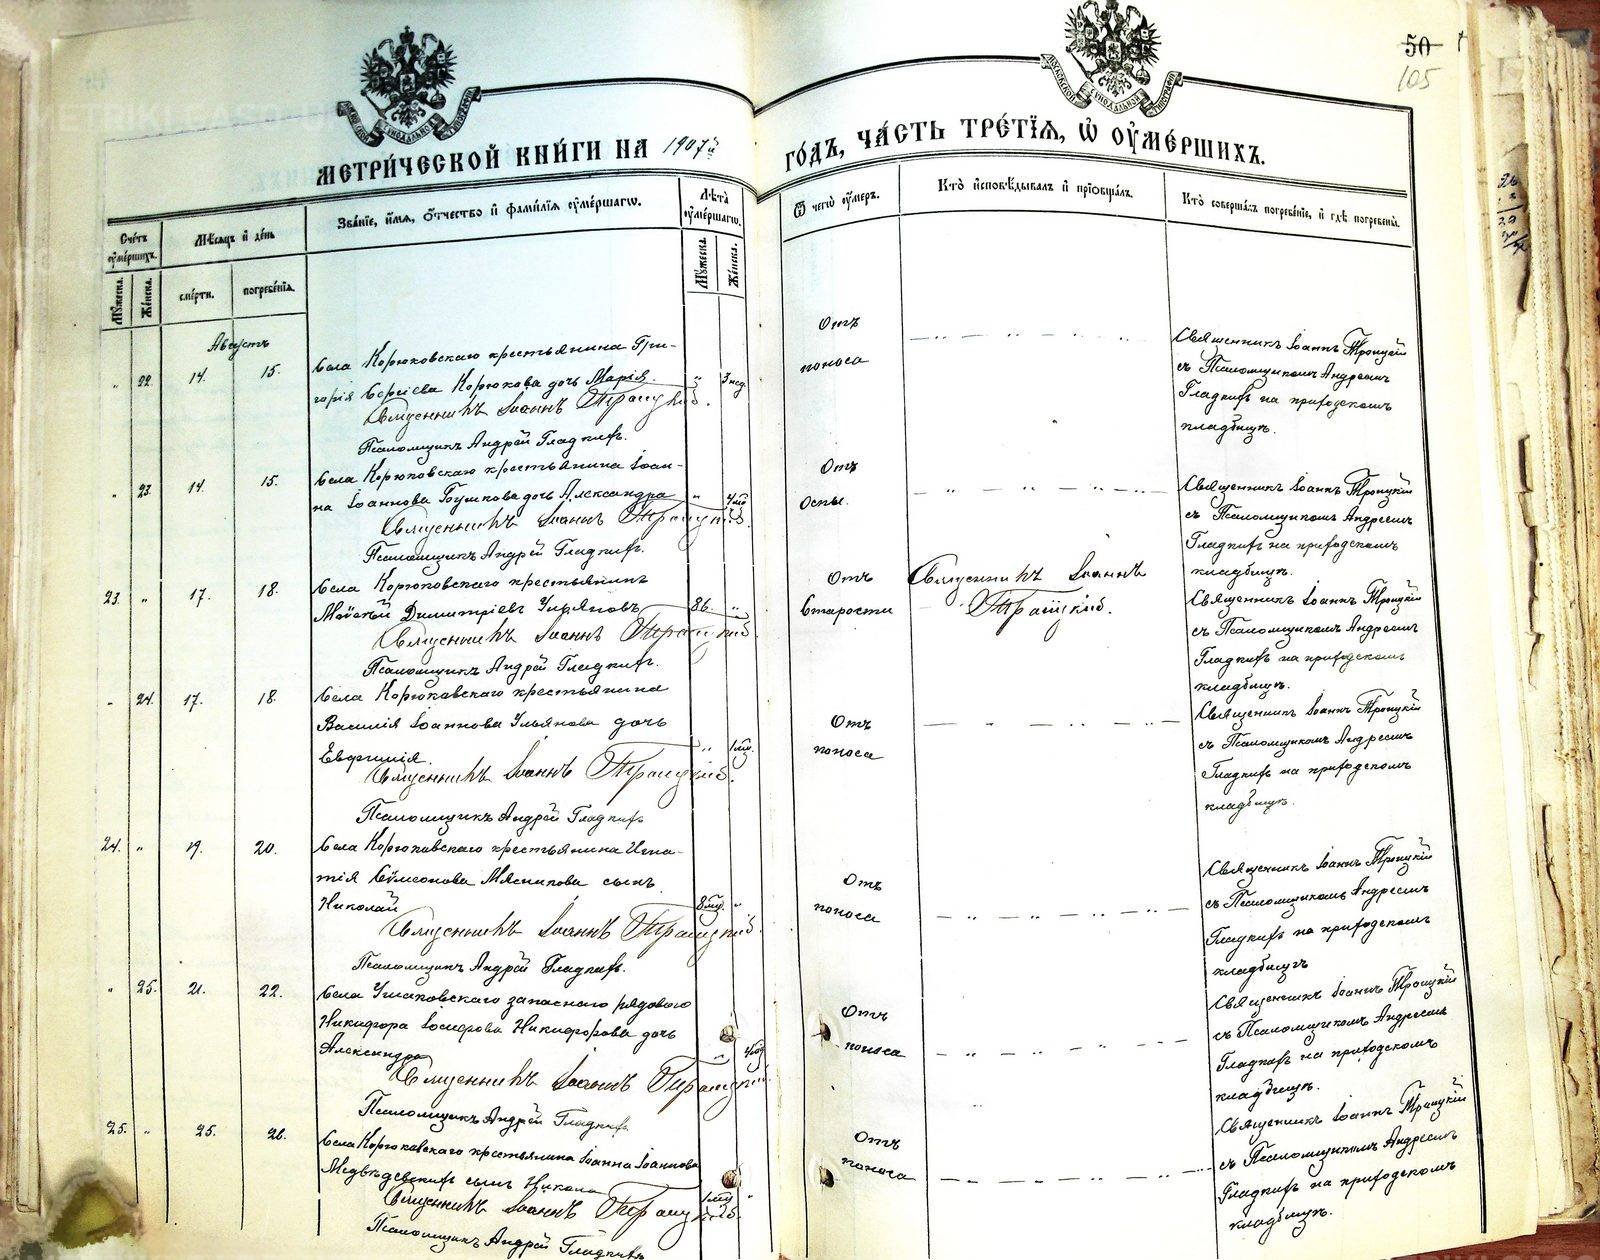 50
105
МЕТРИ́ЧЕСКОЙ КНИ́ГИ НА 1907й
ГО́ДЪ, ЧА́СТЬ ТРЕ́ТІѦ, Ѡ ОУ҆МЕ́РШИХЪ.
Сче́тъ оу҆ме́ршихъ.
Мѣ́сѧцъ и҆ де́нь
Зва́нїе, и҆́мѧ, ѻ҆́тчество и҆ фами́лїѧ оу҆ме́ршагѡ.
Лѣ́та оу҆ме́ршагѡ.
Мꙋ́жеска.
Же́нска.
сме́рти.
погребе́нїѧ.
Мꙋ́жеска.
Же́нска.
Ѿ чегѡ̀ оу҆́меръ.
Кто̀ и҆сповѣ́дывалъ и҆ прїѡбща́лъ.
Кто̀ соверша́лъ погребе́нїе, и҆ гдѣ̀ погребены̀.
Августъ
„ 22. 14. 15.
Села Корюковскаго крестьянина Гри-
горія Сергіева Корюкова дочь Марія. „ 3 нед.
Священникъ Іоаннъ Троицкій.
Псаломщикъ Андрей Гладкихъ.
Отъ
поноса
Священникъ Іоаннъ Троицкій
съ Псаломщикомъ Андреемъ
Гладкихъ на приходскомъ
кладбищѣ.
„ 23. 14. 15.
Села Корюковскаго крестьянина Іоан-
на Іоаннова дочь Александра „
Священникъ Іоаннъ Троицкій.
Псаломщикъ Андрей Гладкихъ.
Отъ
Оспы.
Священникъ Іоаннъ Троицкій
съ Псаломщикомъ Андреемъ
Гладкихъ на приходскомъ
кладбищѣ.
23. „ 17. 18.
Села Корюковскаго крестьянинъ
Моѵсей Димитріевъ Ульяновъ 86. „
Священникъ Іоаннъ Троицкій.
Псаломщикъ Андрей Гладкихъ.
Отъ
Старости
Священникъ Іоаннъ
Троицкій.
Священникъ Іоаннъ Троицкій
съ Псаломщикомъ Андреемъ
Гладкихъ на приходскомъ
кладбищѣ.
„ 24. 17. 18.
Села Корюковскаго крестьянина
Василія Іоаннова Ульянова дочь
Евфимія. „
Священникъ Іоаннъ Троицкій.
Псаломщикъ Андрей Гладкихъ
Отъ
поноса
Священникъ Іоаннъ Троицкій
съ Псаломщикомъ Андреемъ
Гладкихъ на приходскомъ
кладбищѣ.
24. „ 19. 20.
Села Корюковскаго крестьянина Игна-
тія Сѵмеонова Мясникова сынъ
Николай „
Священникъ Іоаннъ Троицкій.
Псаломщикъ Андрей Гладкихъ.
Отъ
поноса
Священникъ Іоаннъ Троицкій
съ Псаломщикомъ Андреемъ
Гладкихъ на приходскомъ
кладбищѣ
„ 25. 21. 22.
Села Ушаковскаго запаснаго рядового
Никифора Іосифова Никифорова дочь
Александра „
Священникъ Іоаннъ Троицкій.
Псаломщикъ Андрей Гладкихъ
Отъ
поноса
Священникъ Іоаннъ Троицкій
съ Псаломщикомъ Андреемъ
Гладкихъ на приходскомъ
кладбищѣ.
25. „ 25. 26.
Села Корюковскаго крестьянина Іоанна Іоаннова
сынъ Никола
Священникъ Іоаннъ Троицкій.
Псаломщикъ Андрей Гладкихъ
Отъ
поноса
Священникъ Іоаннъ Троицкій
съ Псаломщикомъ Андреемъ
Гладкихъ на приходскомъ
кладбищѣ.